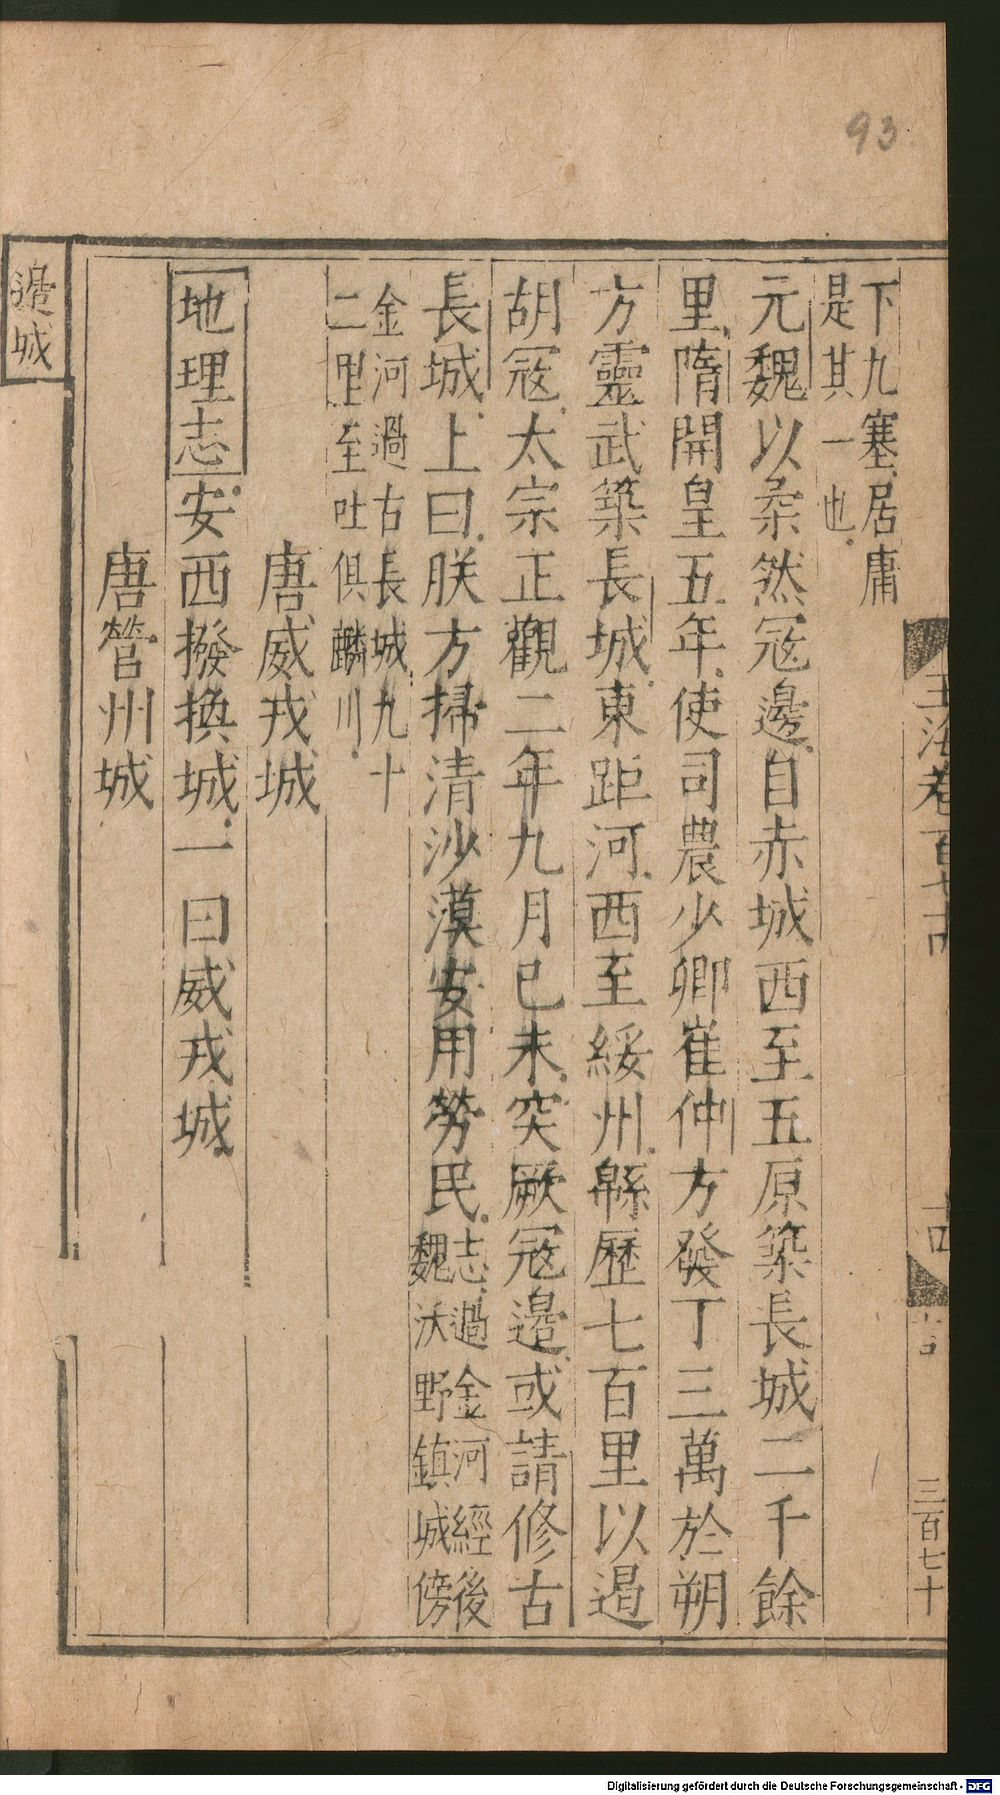 93
下九塞居庸
是其一也
元魏以柔然冦邊自赤城西至五原築長城二千餘
里隋開皇五年使司農少卿崔仲方發丁三萬於朔
方靈武築長城東距河西至綏州緜歷七百里以遏
胡冦太宗正觀二年九月己未突厥冦邊或請修古
長城上曰朕方掃清沙漠安用勞民志過金河經後
魏沃野鎮城傍
金河過古長城九十
二里至吐俱麟川
唐威戎城
地理志安西撥換城一曰威戎城
唐管州城
邊城
玉海卷百七十四
三百七十
Digitalisierung gefördert durch die Deutsche Forschungsgemeinschaft - DFG